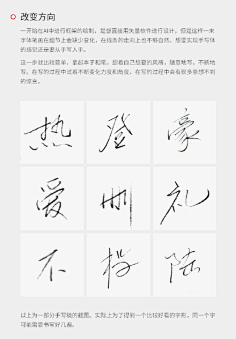 改变方向
一开始在AI中进行框架的绘制，是想直接用矢量软件进行设计，但是这样一来
字体笔画在细节上会缺少变化，在线条的走向上也不够自然，想要实际手写体
的感觉还是要从手写入手。
这一步就比较简单，拿起本子和笔，想着自己想要的风格，随意地写，不断地
写，在写的过程中试着不断变化力度和角度，在写的过程中会有很多意想不到
的惊喜。
热 登 豪
爱 删 礼
不 投 陆
以上为一部分手写稿的截图，实际上为了得到一个比较好看的字形，同一个字
可能需要书写好几遍。